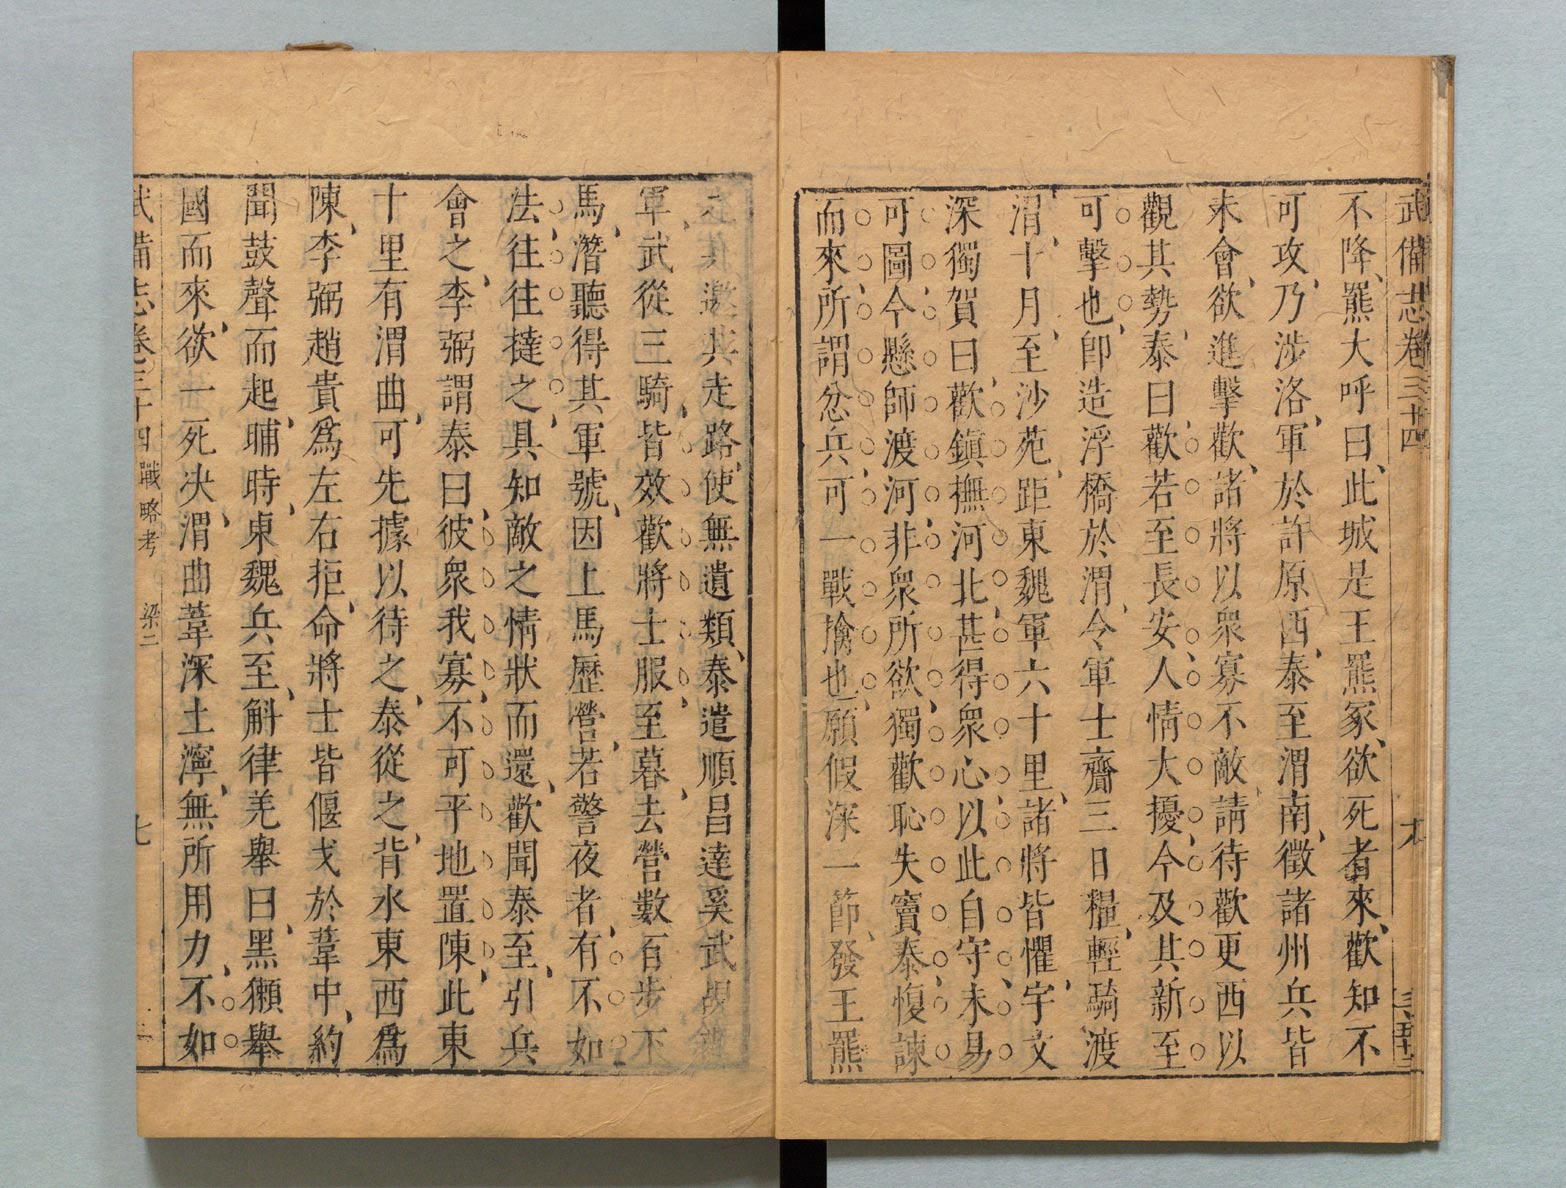 武備志卷三十四
不降、羆大呼曰、此城是王羆冢、欲死者來、歡知不
可攻、乃涉洛、軍於許原西、泰至渭南、徵諸州兵皆
未會、欲進擊歡、諸將以衆寡不敵、請待歡更西以
觀其勢、泰曰、歡若至長安、人情大擾、今及其新至
可擊也、卽造浮橋於渭、令軍士齎三日糧、輕騎渡
渭、十月、至沙苑、距東魏軍六十里、諸將皆懼、宇文
深獨賀曰、歡鎮撫河北、甚得衆心、以此自守、未易
可圖、今懸師渡河、非衆所欲、獨歡恥失竇泰、愎諫
而來、所謂忿兵、可一戰擒也、願假深一節、發王羆
之兵、邀其走路、使無遺類、泰遣順昌達奚武覘歡
軍、武從三騎、皆效歡將士服、至暮、去營數百步下
馬、潛聽得其軍號、因上馬歷營、若警夜者、有不如
法、往往撻之、具知敵之情狀而還、歡聞泰至、引兵
會之、李弼謂泰曰、彼衆我寡、不可平地置陳、此東
十里有渭曲、可先據以待之、泰從之、背水東西爲
陳、李弼趙貴爲左右拒、命將士皆偃戈於葦中、約
聞鼓聲而起、晡時、東魏兵至、斛律羌舉曰、黑獺舉
國而來、欲一死决、渭曲葦深土濘、無所用力、不如
武備志卷三十四 戰略考 梁二 七